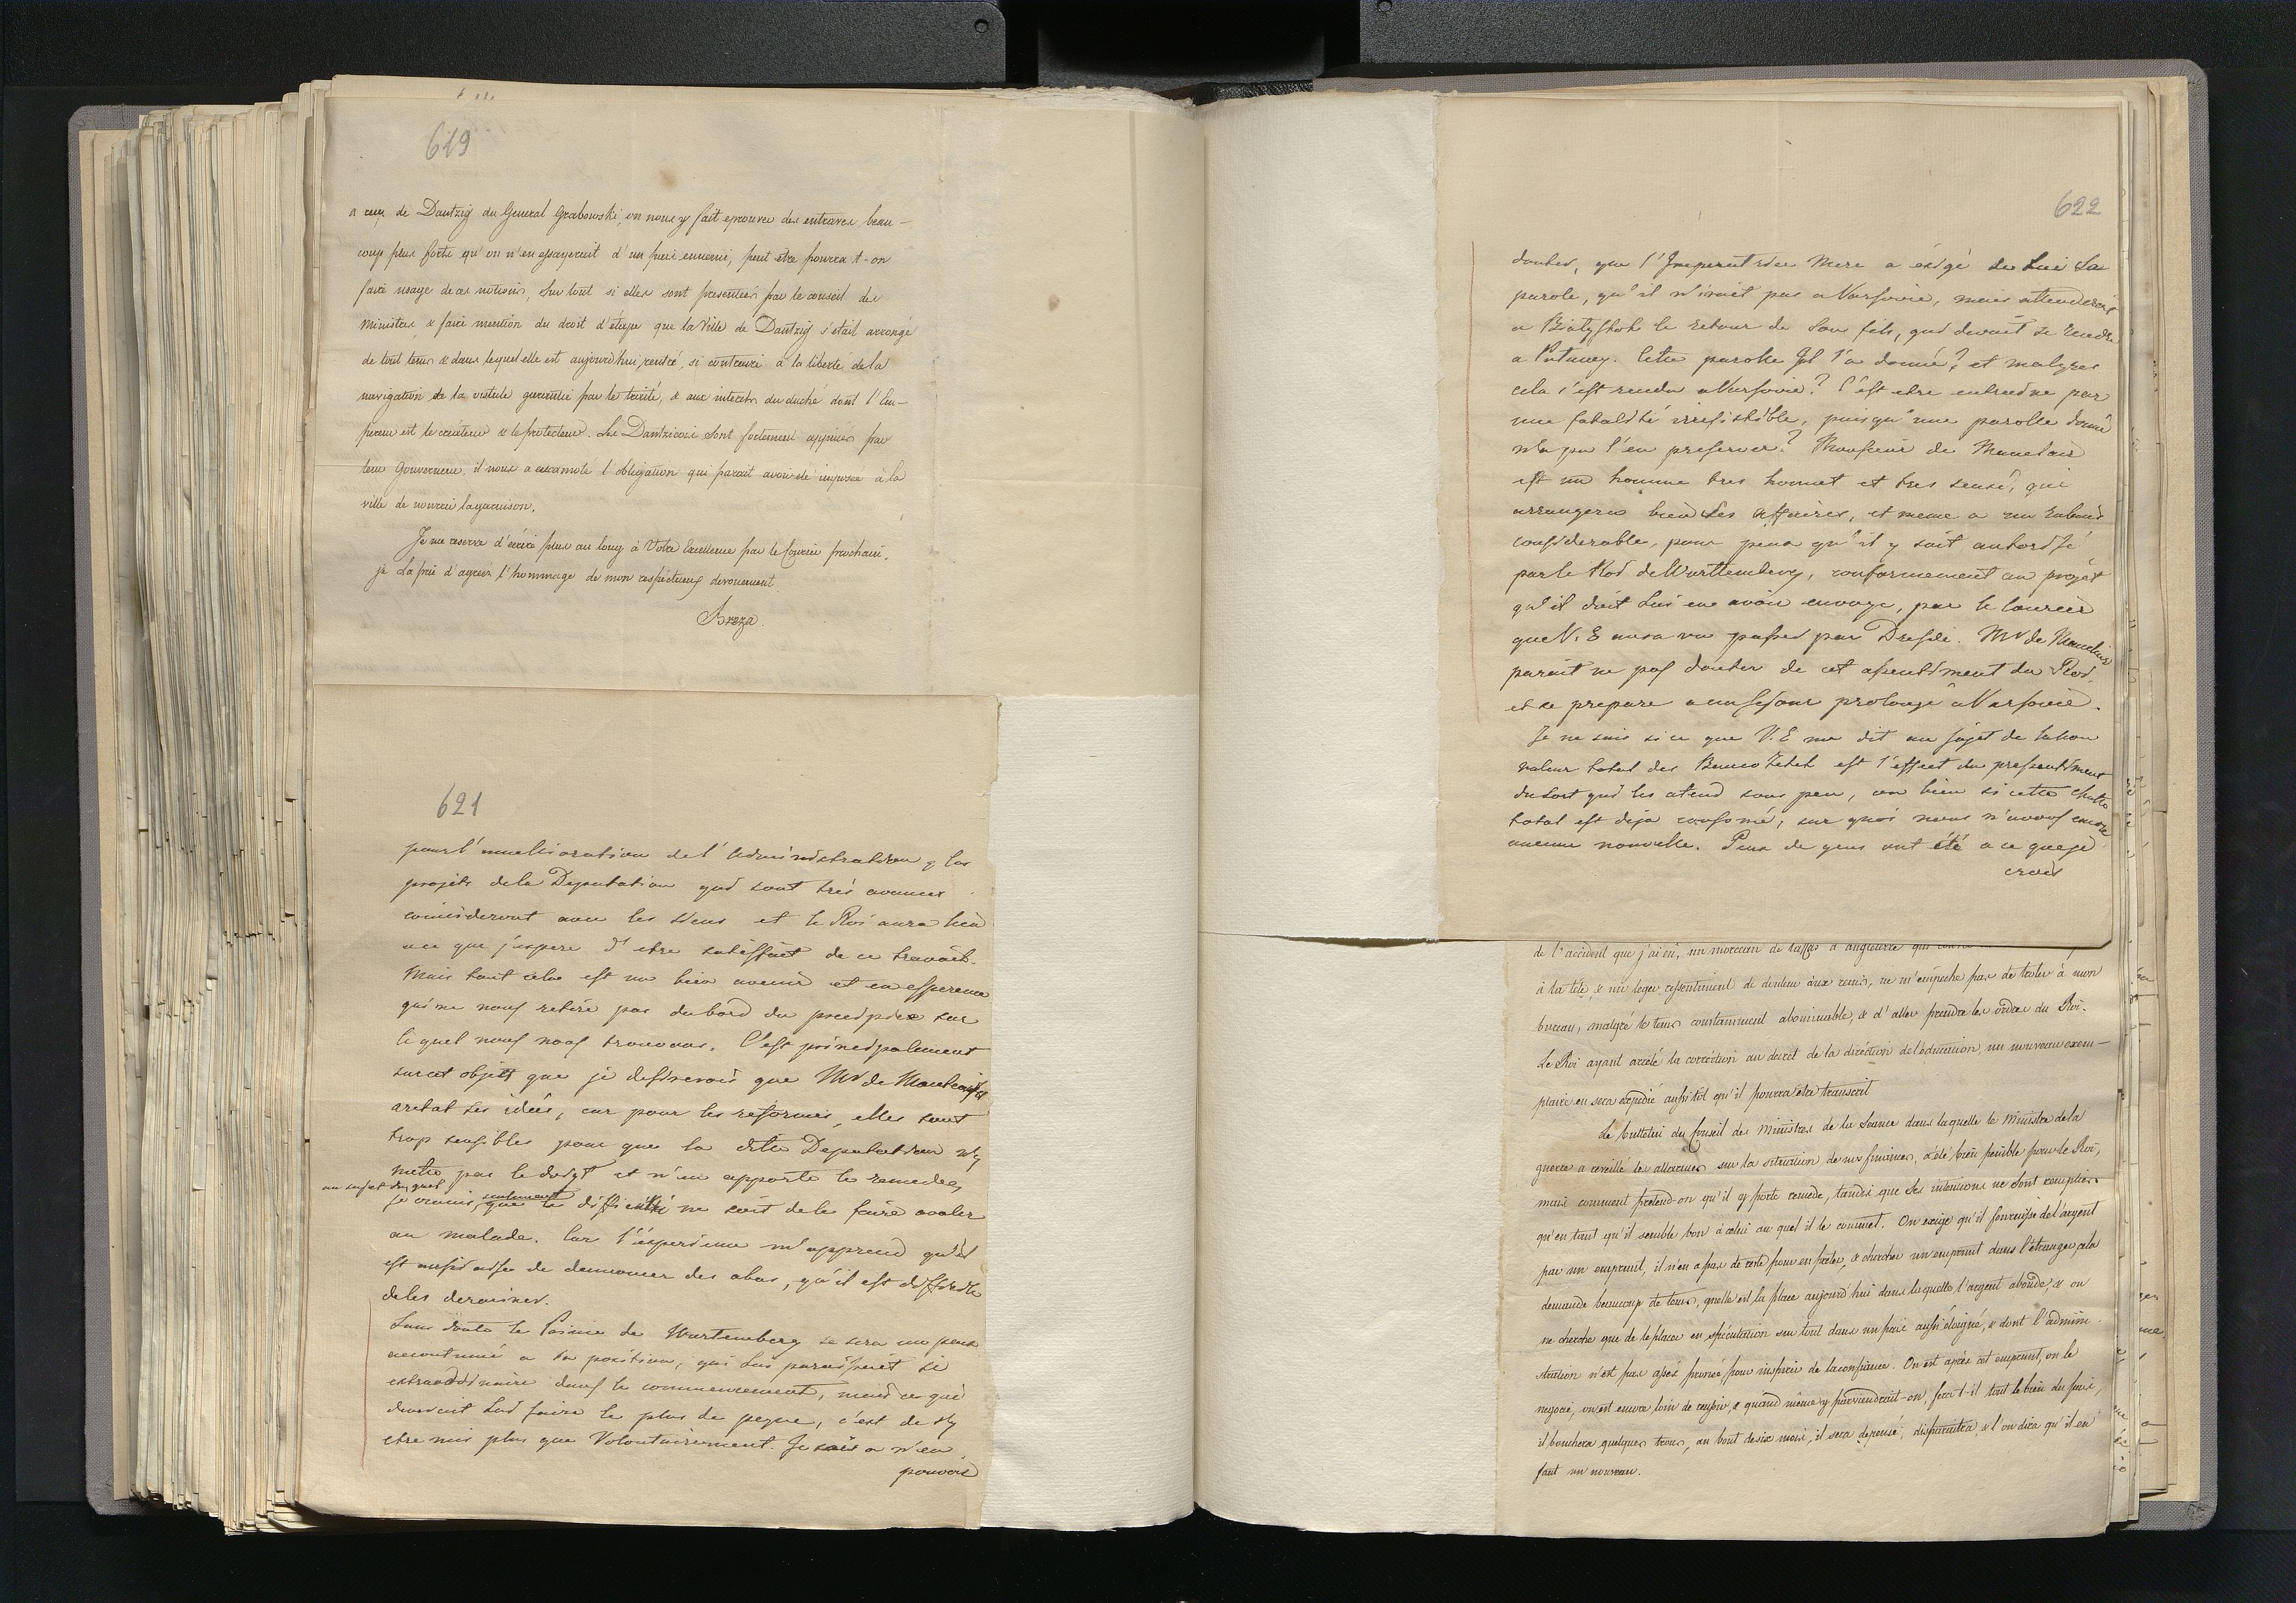 619
a reçu de Dantzig du General Grabowski, on nous y fait eprouver des entraves beau-
coup plus fortes qu'on n'en essayerait d'un paÿs ennemi, peut être pourra t-on
faire usage de ces notions, sur tout si elles sont presentées par le conseil des
Ministres, & faire mention du droit d'étape que la Ville de Dantzig s'était arrogé
de tout tems & dans lequel elle est aujourd'hui rentré, si contraire à la liberté de la
navigation de la vistule garantie par le traité, & aux interets du duché dont l'Em-
pereur est le créateur & le protecteur. Les Dantzicois sont fortement appuiés par
leur Gouverneur, il nous a escamoté l'obligation qui parait avoir été imposée à la
ville de nourrir la garnison.
Je me reserve d'écrire plus au long à Votre Excellence par le Courier prochain,
je La prie d'agréer l'hommage de mon respectueux devouement
Breza.
621
pour l'amelioration de l'Administration, les
projets de la Deputation qui sont très avancés
coincideront avec les siens et le Roi aura lieu
a ce que j'espere d'etre satisffait de ce travail.
Mais tout cela est un bien avenir et en essperence
qui ne nous retire pas du bord du precipice sur
le quel nous nous trouvons. C'est principalement
sur cet objet que je desirerois que Mr de
aretat ses idées, car pour les reformes, elles sont
trop sensibles pour que la ditte Deputation n'y
mette pas le doigt et n'en apporte le remede,
au sujet du quel
je crains seulement que la difficulté ne soit de le faire avaler
au malade. Car l'experience m'apprend qu'il
est aussi aisé de denoncer des abus, qu'il est difficile
de les deraciner.
Sans doute le Prince de Wurtemberg se sera un peux
accoutumé a sa position, qui lui paroissoit si
extraordinaire dans le commencement, mais ce qui
devroit lui faire le plus de peyne, c'est de s'y
etre mis plus que Volontairement. Je sais a n'en
pouvoir
622
douter, que l'Imperatrice Mere a éxigé de Lui Sa
parole, qu'il n'iroit pas a Varsovie, mais attenderoit
a Bialystok le retour de son fils, qui devoit se rendre
a Pulawy. Cette parole Il l'a donné? et malgres
cela s'est rendu a Varsovie? C'est etre entrainé par
une fatalité irresistible, puisqu'une parolle donné
n'a pu l'en preserver? Monsieur de Maucler
est un homme tres honnet et tres sensé, qui
arrangera bien Ses affaires, et meme a un rabais
considerable, pour peux qu'il y soit authorisé
par le Roi de Wurttemberg, conformement au projet
qu'il doit Lui en avoir envoyé, par le Courier
que V. E aura vu passer par Dresde. Mr de Maucler
parait ne pas douter de cet assentiment du Roi
et se prepare a un sejour prolongé a Varsovie.
Je ne sais si ce que V. E me dit au sujet de la non
valeur total des Banco Zetel est l'effect du pressentiment
du sort qui les atend sous peu, ou bien si cette chutte
total est deja consomé, sur quoi nous n'avons encore
aucune nouvelle. Peux de gens ont été a ce que je
crois
de l'accident que j'ai eu, un morceau de taffetas d'angleterre qui
à la tête, & un leger ressentiment de douleur aux reins, ne m'empeche pas de troter à mon
bureau, malgré le tems constamment abominable, & d'aller prendre les ordres du Roi.
Le Roi ayant arreté la correction au decret de la direction de l'éducation, un nouveau exem-
plaire en sera expedié aussitôt qu'il pourra être transcrit
Le bulletin du Conseil des Ministres de la Seance dans laquelle le Ministre de la
guerre a reveillé les allarmes sur la situation de nos finances, a été bien penible pour le Roi,
mais comment pretend-on qu'il y porte remede, tandis que Ses intentions ne sont remplies
qu'en tant qu'il semble bon à celui au quel il le commet. On exige qu'il fournisse de l'argent
par un emprunt, il n'en a pas de reste pour en preter, & chercher un emprunt dans l'étranger cela
demande beaucoup de tems, quelle est la place aujourd'hui dans laquelle l'argent abonde, & on
ne cherche que de le placer en spéculation sur tout dans un paÿs aussi éloigné, & dont l'admini-
stration n'est pas assés pronée pour inspirer de la confiance. On est après cet emprunt, on le
negocie, on est encore loin de reussir, & quand même y parviendrait-on, fera t-il tout le bien du païs,
il bouchera quelques trous, au bout de six mois, il sera depensé, disparaitra, & l'on dira qu'il en
faut un nouveau.